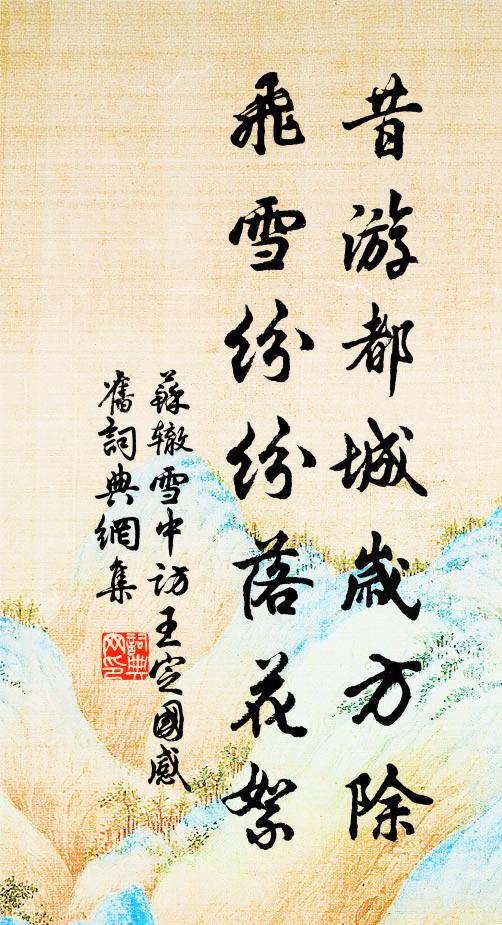 昔游都城歲方除
飛雪紛紛落花絮
蘇轍雪中訪王定國感
舊詞典網集
詞典
网印